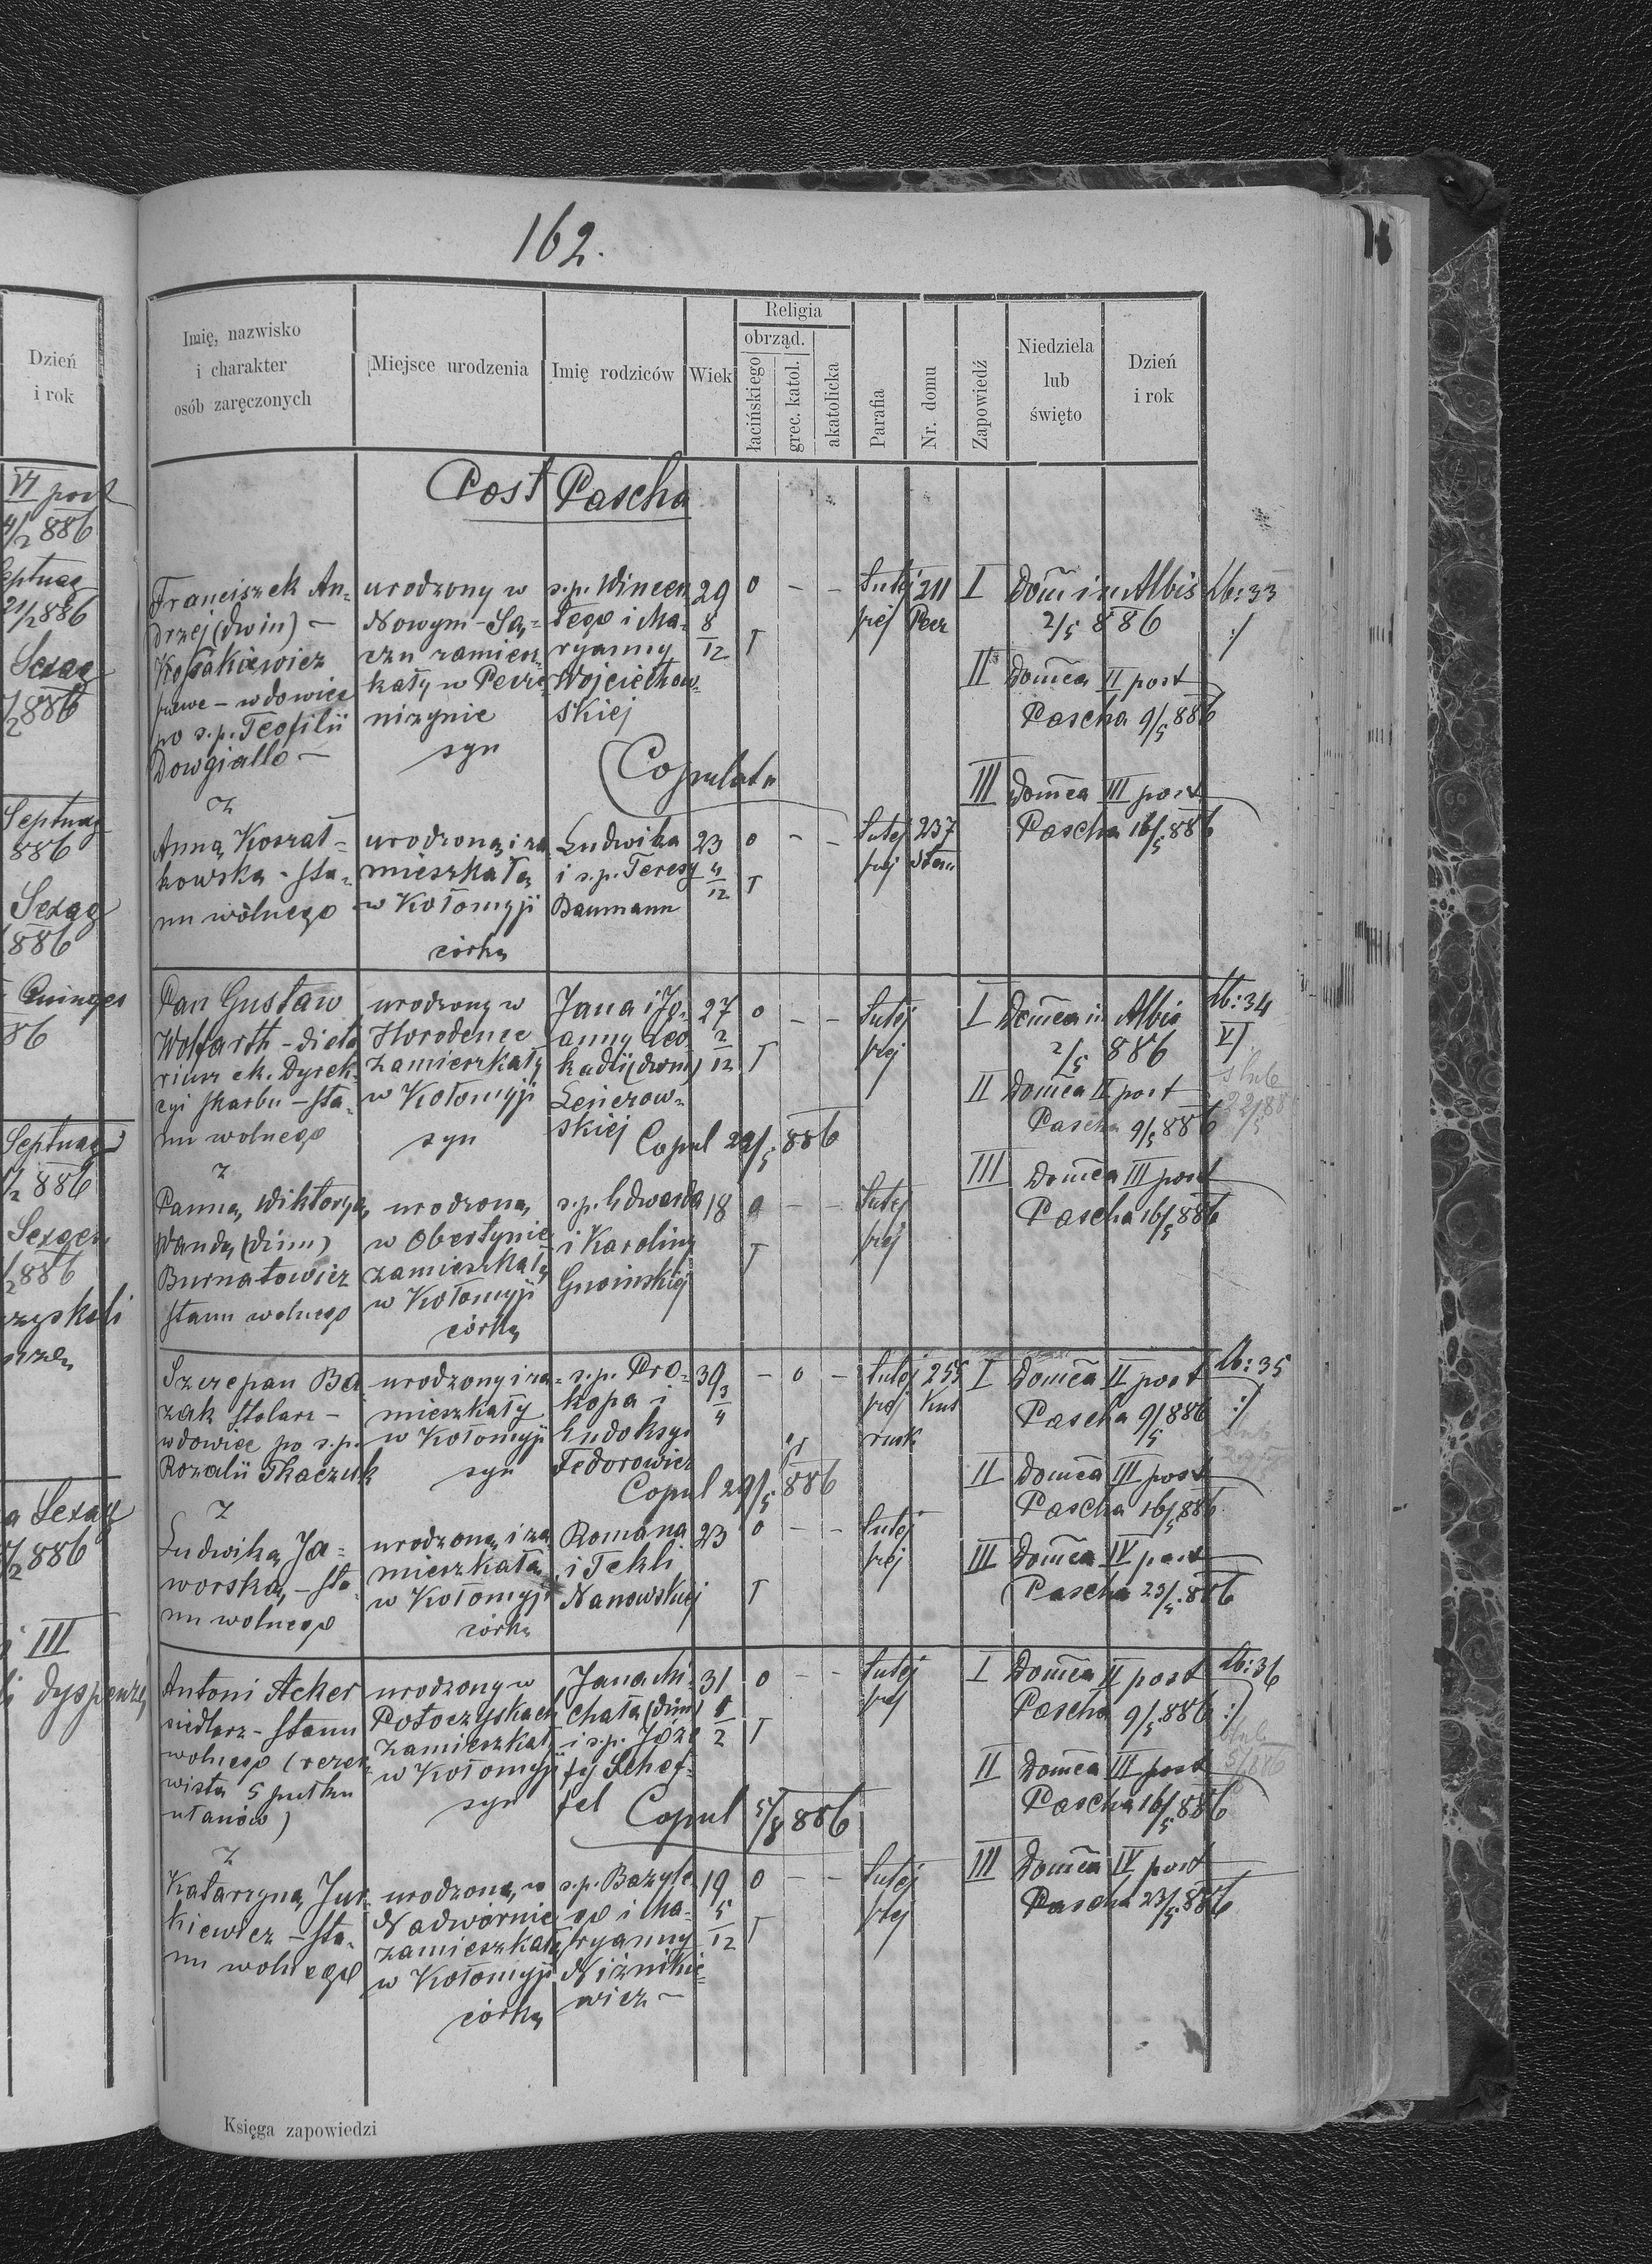 162.
Imię, nazwisko
i charakter
osób zaręczonych
Miejsce urodzenia
Imię rodziców
Wiek
Religia
obrząd.
łacińskiego
grec. katol.
akatolicka
Parafia
Nr. domu
Zapowiedź
Niedziela
lub
święto
Dzień
i rok
Post Pascha
Franciszek An-
drzej (dwim) -
Kossakiewicz
wdowiec
po s.p. Teofilii
Dowgiallo -
urodzony w
Nowym-Są-
czu zamiesz-
kały w Pecze-
niżynie
syn
s.p. Wincen
tego i Ma-
ryanny
Wojciechow-
skiej
29
8
12
o - -
T
Tutej
szej
211
Pecz
I Dom in Albis
2/5 886
II Domca II post
Pascha 9/5 886
III Domca III post
Pascha 16/5 886
Lb: 33
:/
Copulati
z
Anną Koszał-
kowska - sta-
nu wolnego
urodzoną i za
mieszkałą
w Kołomyji
córką
Ludwika
i s.p. Teresy
Baumann
23
4
12
o - -
T
Tutej
szej
237
Pan Gustaw
Wolfarth - dieta
riusz ck. Dyrek-
cyi skarbu - sta-
nu wolnego
urodzony w
Horodence
zamieszkały
w Kołomyji
syn
Jana i Jo-
anny Leo-
kadii (dwim)
skiej
27
2
12
o - -
T
Tutej
szej
I Domca in Albis
2/5 886
II Domca II post
Pascha 9/5 886
III Domca III post
Pascha 16/5 886
Lb: 34
ślub
22/5 88
Copul 22/5 886
z
Panną Wiktoryą
Wandą (dwim)
Burnatowicz
stanu wolnego
urodzoną
w Obertynie
zamieszkałą
w Kołomyji
córką
s.p. Edwarda
i Karoliny
Gnoinskiej
18
o - -
T
Tutej
szej
Szczepan Ba
zak stolarz -
wdowiec po s.p.
Rozalii Tkaczuk
urodzony i za-
mieszkały
w Kołomyji
syn
s.p. Pro-
kopa i
Eudoksyi
Fedorowicz
39
3
4
- o -
Tutej
szej
rusk
255
Kut
I Domca II post
Pascha 9/5 886
II Domca III post
Pascha 16/5 886
III Domca IV post
Pascha 23/5 886
Lb: 35
:/
ślub
Copul 29/5 886
z
Ludwiką Ja-
worską - sta-
nu wolnego
urodzoną i za
mieszkałą
w Kołomyji
córką
Romana
i Tekli
Nanowskiej
23
o - -
T
Tutej
szej
Antoni Acker
siedlarz - stanu
wolnego (rezer-
wista 5 pułku
ułanów)
urodzony w
Potoczyskach
zamieszkały
w Kołomyji
syn
Jana Mi-
chała (dwim)
i s.p. Józe
fy Schef-
fel
31
1
2
o - -
T
Tutej
szej
I Domca II post
Pascha 9/5 886
II Domca III post
Pascha 16/5 886
III Domca IV post
Pascha 23/5 886
Lb: 36
:/
ślub
Copul 5/8 886
z
Katarzyną Jur-
kiewicz - sta-
nu wolnego
urodzoną w
Nadwórnie
zamieszkałą
w Kołomyji
córką
s.p. Bazyle
go i Ma-
ryanny
Niżnikie-
wicz -
19
5
12
o - -
T
Tutej
szej
Księga zapowiedzi
Dzień
i rok
VI post
886
Septuag
21/2 886
Sexag
886
Septuag
886
Sexag
886
Septuag
886
Sexagen
886
Sexag
886
III
dyspenzę